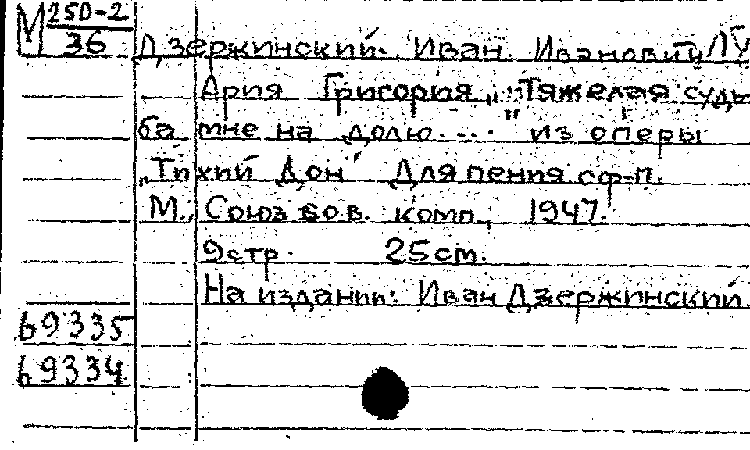 М 250-2
36
Дзержинский Иван Иванович
Ария Григория „Тяжелая судь
ба мне на долю..." из оперы
„Тихий Дон" Для пения сф-п.
М., Союз сов. комп., 1947.
9стр. 25см.
На издании: Иван Дзержинский
69335
69334